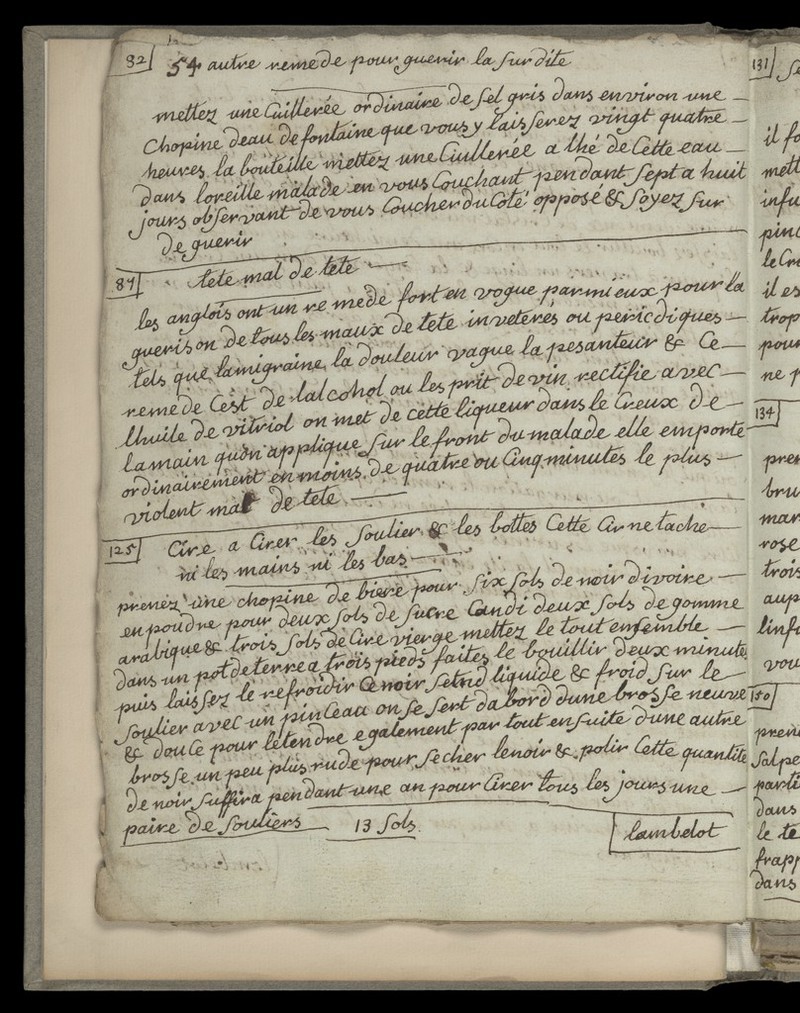 82 54 autre remede pour guerir la surdite
mettez une Cuillerée ordinaire de sel gris dans environ une
Chopine deau de fontaine que vous y laisserez vingt quatre
heures la bouteille mettez une Ciullerée a thé de Cette eau
dans loreille malade en vous Couchant pendant sept a huit
jours observant de vous Coucher du Coté opposé & soyez sur
de guerir
87 tete mal de tete
les anglois ont un remede fort en vogue parmi eux pour la
guerison de tous les maux de tete inveterés ou periodiques
tels que lamigraine, la douleur vague la pesanteur & Ce
remede Cest de lalcohol ou lesprit de vin rectifie avec
lhuile de vitriol on met de cette liqueur dans le Creux de
lamain quon applique sur le front du malade elle emporte
ordinairement en moins de quatre ou Cinq minutes le plus
violent mal de tete
125 Cire a Cirer les soulier & les bottes Cette Cir ne tache
ni les mains ni les bas
prenez une chopine de biere pour six sols de noir divoire
en poudre pour deux sols de sucre Candi deux sols de gomme
arabique & trois sols de Cire vierge mettez le tout ensemble
dans un pot de terre a trois pieds faites le bouillir deux minutes
puis laissez le refroidir Ce noir setend liquide & froid sur le
soulier avec un pinceau on se sert dabord dune brosse neuve
& douce pour letendre egalement par tout ensuite dune autre
brosse un peu plus rude pour secher lenoir & polir Cette quantite
de noir suffira pendant une an pour Cirer tous les jours une
paire de souliers 13 sols.
lambelot
131
il fo
mett
infu
pinc
le Cr
il es
trop
pour
ne p
134
pren
bru
mar
rose
trois
aup
linfu
vou
150
pren
salpe
parti
dans
le te
frapp
dans